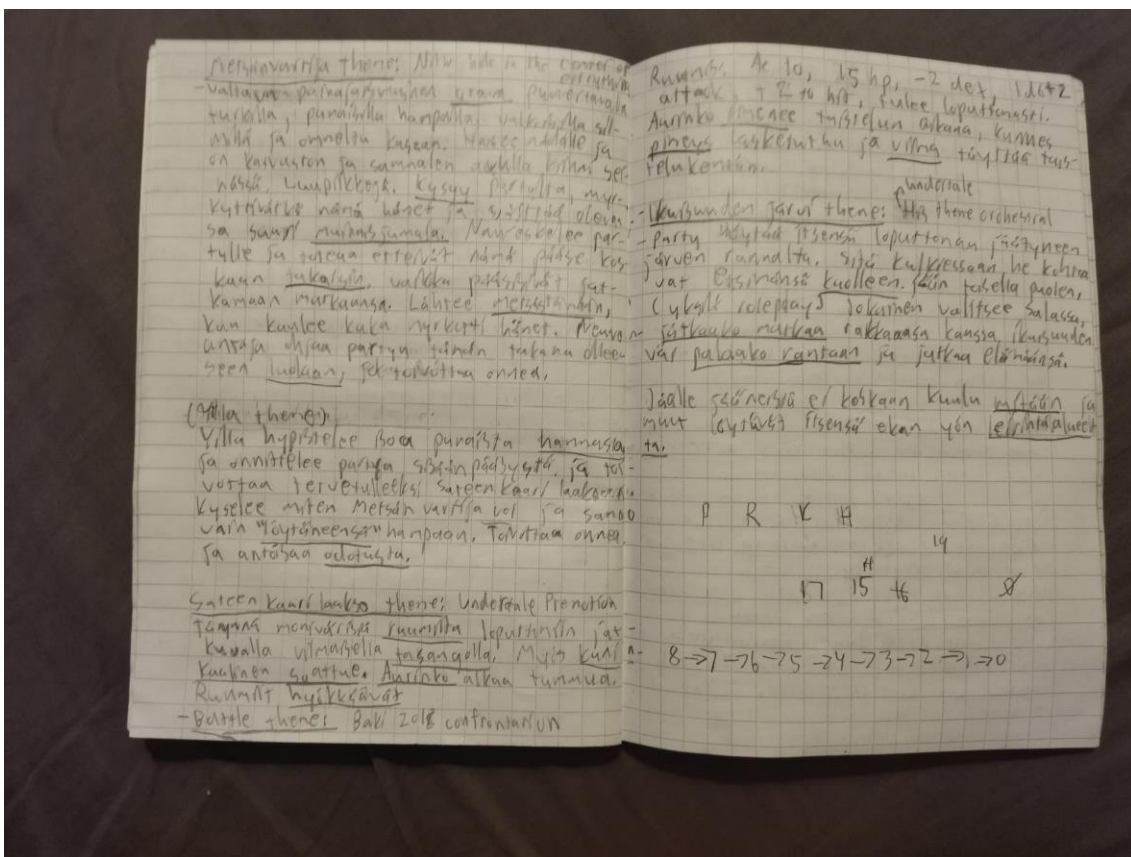 Metsänvartija theme: Nitw hole in the center of everything
- Valtava orava, punertavalla
turkilla, punaisilla hampailla, valkoisilla sil-
millä ja onnelta kasvan. Haisee
on kasvuston ja sammalen
nässä. Luupiikkejä. Kysyy partylta, myr-
kyttivätkö nämä hänet ja olevan-
sa suuri muinaisjumala. Naureskelee par-
tylle ja toteaa etteivät nämä pääse kos-
kaan takaisin, vaikka päässivät jat-
kamaan matkaansa. Lähtee metsästämään,
kun kuulee kuka myrkytti hänet. Neuvon
antaja ohjaa partyn tämän takana olleeseen
luolaan, toivottaa onnea.
(Villa theme)
Villa hypistelee isoa punaista hammasta
ja onnittelee partya sisäänpääsystä, ja toi-
vottaa tervetulleeksi Sateenkaari laaksoon.
Kyselee miten Metsän vartija voi ja sanoo
vain "löytäneensä" hampaan. Toivottaa onnea
ja antoisaa odotusta.
Sateenkaari laakso theme: Undertale Premonition
Täynnä monivärisiä ruumiita loputtoman jat-
kuvalla tasangolla. Myös
vaatteet. Aurinko alkaa tummua.
Ruumiit hyökkäävät
- Battle theme: Baki 2018 confrontation
Ruumiit: Ac 10, 15 hp, -2 dex, 1d6+2
attack, + 2 to hit, tulee loputtomasti.
Aurinko pimenee taistelun aikana, kunnes
pimeys laskeutuu ja täyttää tais-
telukentän.
undertale
- Ikuisuuden järvi theme: His theme orchestral
- Party löytää itsensä loputtoman jäätyneen
järven rannalta. Sitä kulkiessaan he kohtaa-
vat ensimmäisenä kuolleen. jään toisella puolen,
(yksilö roleplay) Jokainen valitsee salassa,
jatkaako matkaa rakkaansa kanssa ikuisuuden
vai palaako rantaan ja jatkaa elämäänsä.
Jäälle jääneistä ei koskaan kuulu mitään ja
muut löytävät itsensä ekan yön leirintäalueel-
ta.
P R K H
19
H
17 15 16
8→7→6→5→4→3→2→1→0